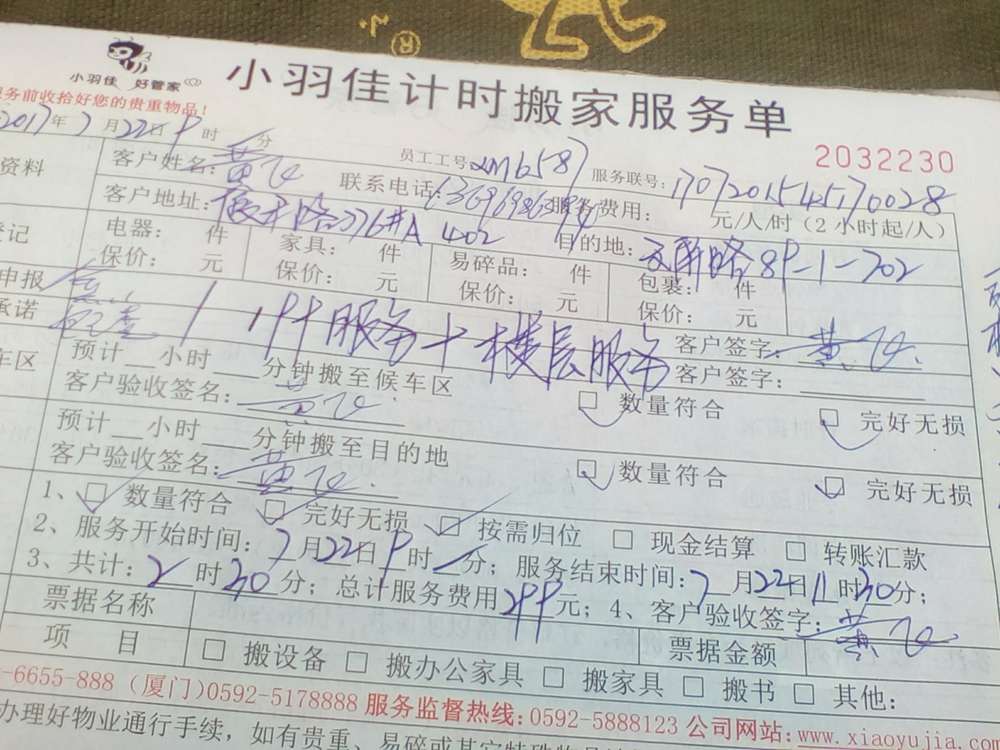 ®
小羽佳 好管家
小羽佳计时搬家服务单
服务前收拾好您的贵重物品!
2032230
2017年7月22日9时 分
员工工号: 服务联号:
资料 客户姓名: 联系电话: 服务费用: 元/人/时(2小时起/人)
客户地址: 402 目的地: 89-1-702
登记 电器: 件 家具: 件 易碎品: 件 包裹: 件
保价: 元 保价: 元 保价: 元 保价: 元
申报 客户签字:
承诺 服务+楼层服务 客户签字:
车区 预计 小时 分钟搬至候车区
客户验收签名: 数量符合 完好无损
预计 小时 分钟搬至目的地
客户验收签名: 数量符合 完好无损
1、 数量符合 完好无损 按需归位 现金结算 转账汇款
2、服务开始时间:7月22日9时 分; 服务结束时间:7月22日11时30分;
3、共计:2时30分; 总计服务费用299元; 4、客户验收签字:
票据名称 票据金额
项目 搬设备 搬办公家具 搬家具 搬书 其他:
-6655-888 (厦门)0592-5178888 服务监督热线:0592-5888123 公司网站:www.xiaoyujia.com
办理好物业通行手续,如有贵重、易碎或其它特殊物品